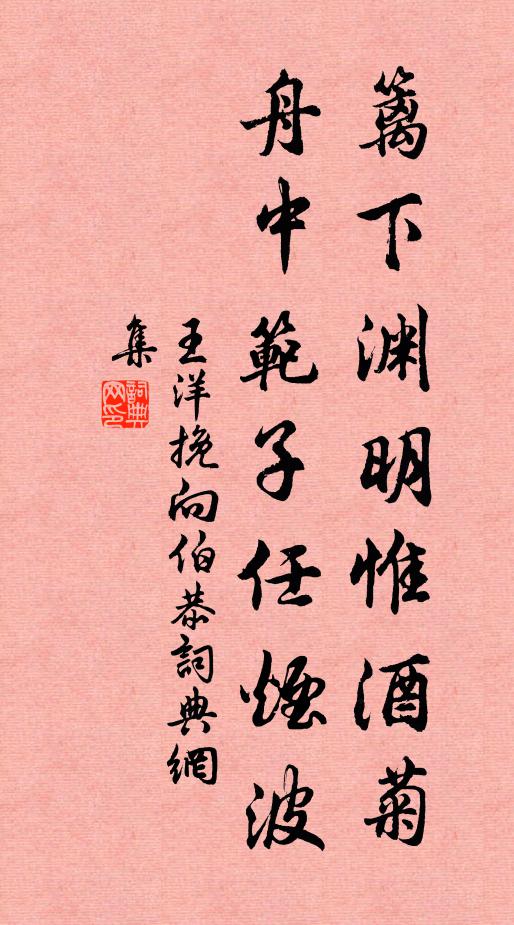 籬下渊明惟酒菊
舟中範子任煙波
王洋挽向伯恭詞典網
集
詞典
网印